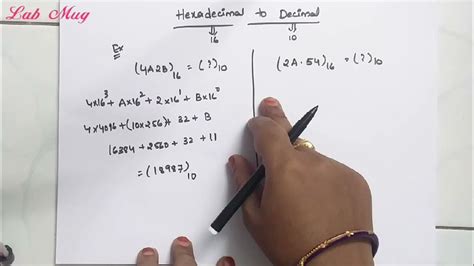 Lab Mug
Hexadecimal to Decimal
⇓ ⇓
16 10
Ex
(4A2B)₁₆ = (?)₁₀
4x16³ + Ax16² + 2x16¹ + Bx16⁰
4x4096 + (10x256) + 32 + B
16384 + 2560 + 32 + 11
= (18987)₁₀
(2A.54)₁₆ = (?)₁₀